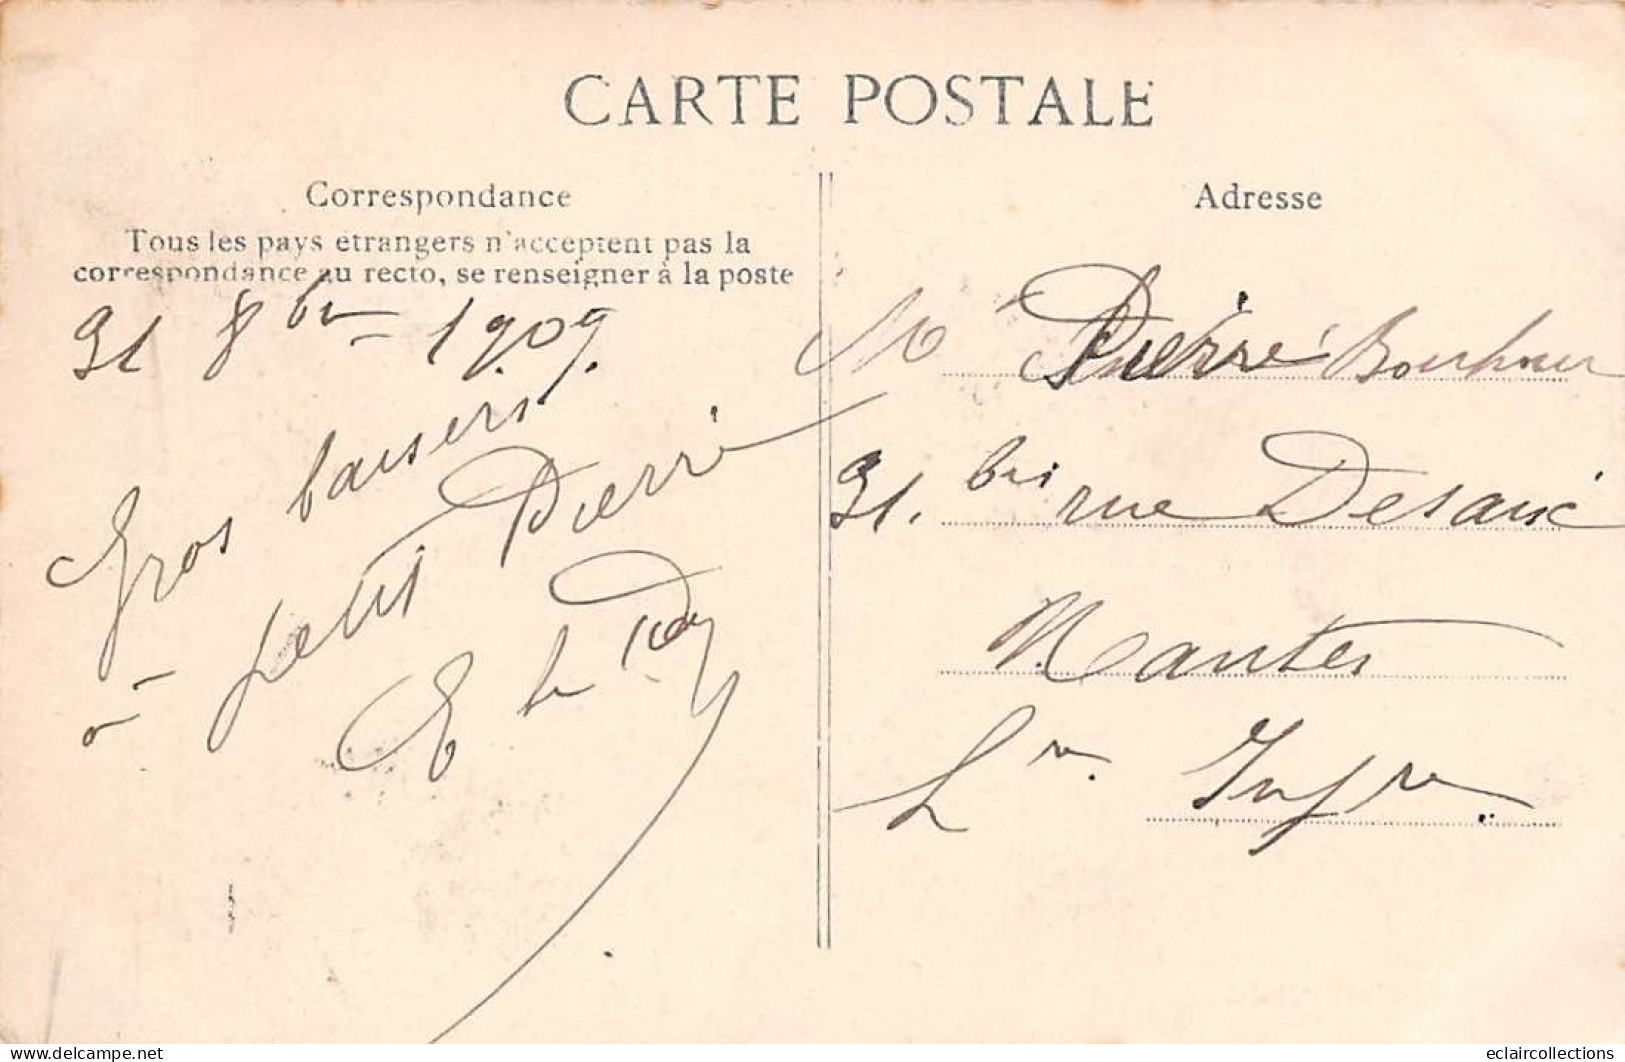 CARTE POSTALE
Correspondance
Tous les pays étrangers n'acceptent pas la
correspondance au recto, se renseigner à la poste
31 8bre 1909.
Gros baisers
à petit Pierre
Adresse
M Pierre
31. bis rue Desaix
Nantes
Lre Infre
eclaircollections